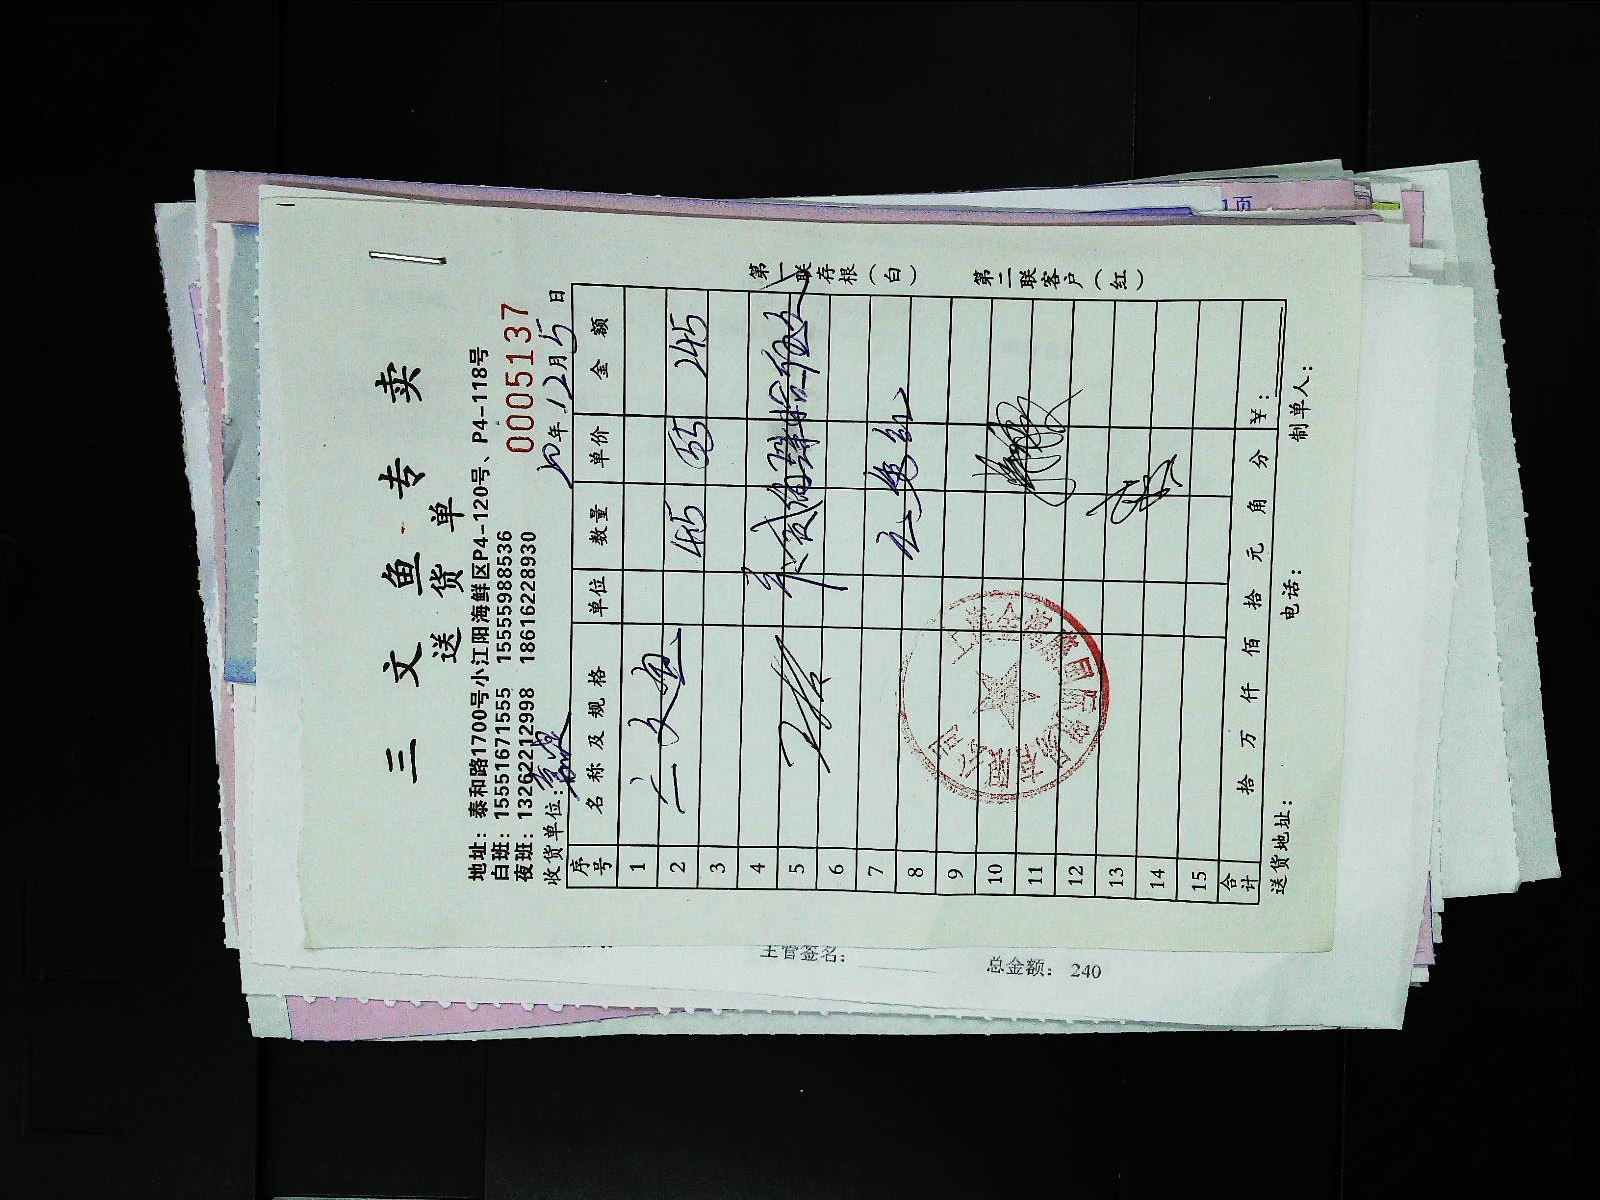 三文鱼专卖
送货单
地址：泰和路1700号小江阳海鲜区P4-120号、P4-118号
白班：15551671555 15555988536
夜班：13262212998 18616228930
0005137
收货单位： 年12月5日
序号 名称及规格 单位 数量 单价 金额
1
2 三文鱼 4.45 55 245
3
4
5
6
7
8
9
10
11
12
13
14
15
合计 拾 万 仟 佰 拾 元 角 分 ¥：
送货地址： 电话： 制单人：
第一联存根（白）
第二联客户（红）
国际贸易有限公司
主管签名：
总金额： 240
1页